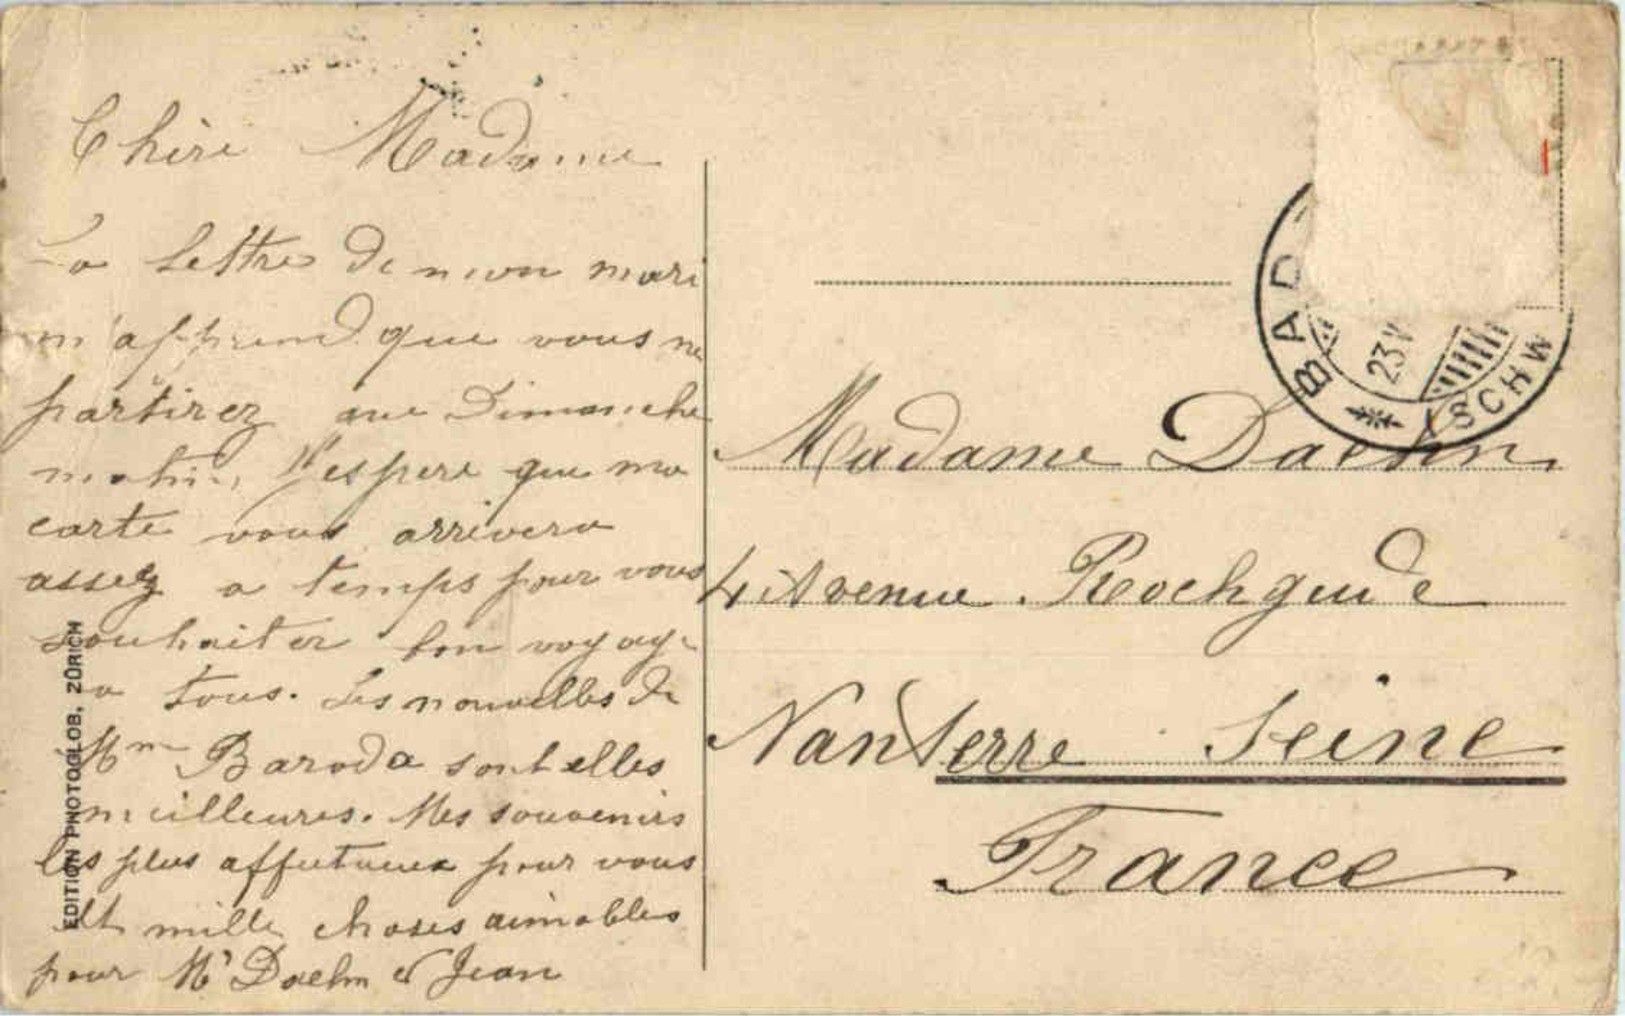 Chère Madame
La lettre de mon mari
m'apprend que vous ne
partirez que Dimanche
matin, J'espère que ma
carte vous arrivera
assez a temps pour vous
souhaiter bon voyage
a tous. Les nouvelles de
Mme Baroda sont elles
meilleures. Mes souvenirs
les plus affectueux pour vous
et mille choses aimables
pour Mr Daehn et Jean
EDITION PHOTOGLOB, ZÜRICH
BAD
23 V
SCHW
Madame Daehn
4 Avenue Rochegude
Nanterre Seine
France